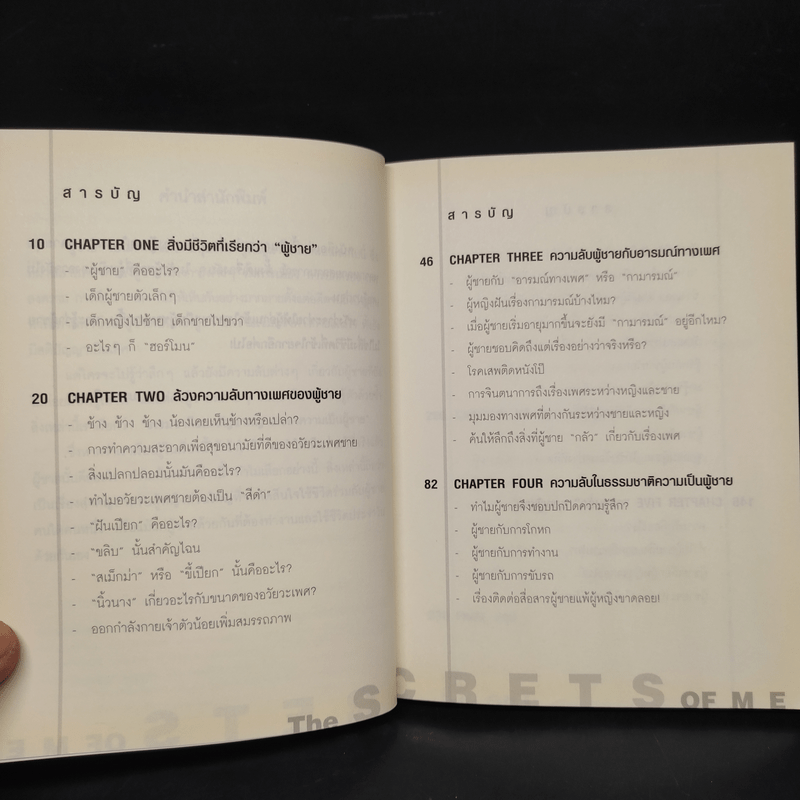 สารบัญ
10 CHAPTER ONE สิ่งมีชีวิตที่เรียกว่า "ผู้ชาย"
- "ผู้ชาย" คืออะไร?
- เด็กผู้ชายตัวเล็กๆ
- เด็กหญิงไปซ้าย เด็กชายไปขวา
- อะไรๆ ก็ "ฮอร์โมน"
20 CHAPTER TWO ล้วงความลับทางเพศของผู้ชาย
- ช้าง ช้าง ช้าง น้องเคยเห็นช้างหรือเปล่า?
- การทำความสะอาดเพื่อสุขอนามัยที่ดีของอวัยวะเพศชาย
- สิ่งแปลกปลอมนั้นมันคืออะไร?
- ทำไมอวัยวะเพศชายต้องเป็น "สีดำ"
- "ฝันเปียก" คืออะไร?
- "ขลิบ" นั้นสำคัญไฉน
- "สเม็กม่า" หรือ "ขี้เปียก" นั้นคืออะไร?
- "นิ้วนาง" เกี่ยวอะไรกับขนาดของอวัยวะเพศ?
- ออกกำลังกายเจ้าตัวน้อยเพิ่มสมรรถภาพ
สารบัญ
46 CHAPTER THREE ความลับผู้ชายกับอารมณ์ทางเพศ
- ผู้ชายกับ "อารมณ์ทางเพศ" หรือ "กามารมณ์"
- ผู้หญิงฝันเรื่องกามารมณ์บ้างไหม?
- เมื่อผู้ชายเริ่มอายุมากขึ้นจะยังมี "กามารมณ์" อยู่อีกไหม?
- ผู้ชายชอบคิดถึงแต่เรื่องอย่างว่าจริงหรือ?
- โรคเสพติดหนังโป๊
- การจินตนาการถึงเรื่องเพศระหว่างหญิงและชาย
- มุมมองทางเพศที่ต่างกันระหว่างชายและหญิง
- ค้นให้ลึกถึงสิ่งที่ผู้ชาย "กลัว" เกี่ยวกับเรื่องเพศ
82 CHAPTER FOUR ความลับในธรรมชาติความเป็นผู้ชาย
- ทำไมผู้ชายจึงชอบปกปิดความรู้สึก?
- ผู้ชายกับการโกหก
- ผู้ชายกับการทำงาน
- ผู้ชายกับการขับรถ
- เรื่องติดต่อสื่อสารผู้ชายแพ้ผู้หญิงขาดลอย!
TS OF ME
The SECRETS OF ME